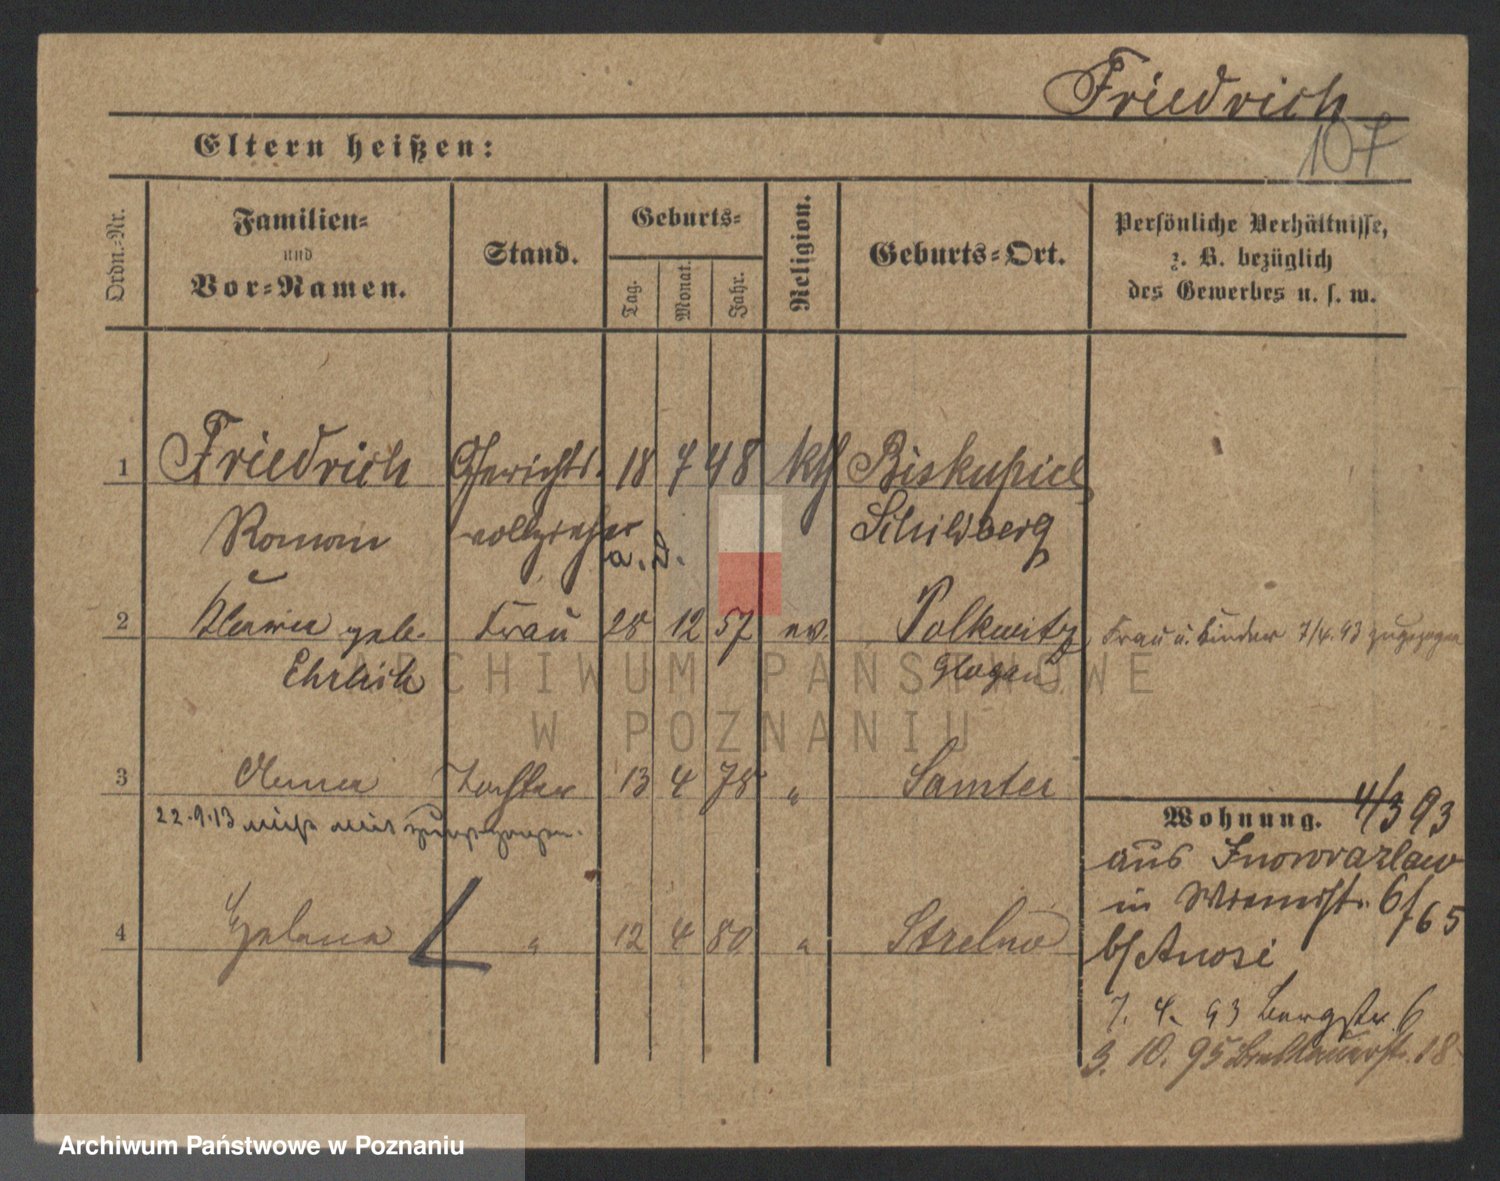 Friedrich
107
Eltern heißen:
Ordn.-Nr.
Familien-
und
Vor-Namen.
Stand.
Geburts-
Tag.
Monat.
Jahr.
Religion.
Geburts-Ort.
Persönliche Verhältnisse,
z. B. bezüglich
des Gewerbes u. s. w.
1 Friedrich Gerichts- 18 7 48 kth Biskupice
Roman vollzieher Schildberg
a. D.
2 geb. Frau 28 12 57 ev. Polkwitz Frau u. Kinder 7/4. 93 zugezogen
Ehrlich Glogau
ARCHIWUM PAŃSTWOWE
W POZNANIU
3 Tochter 13 4 78 " Samter
22.9.13 nicht mit zugezogen.
Wohnung. 4/3 93
aus Inowrazlaw
in 6/765
4 Helena " 12 4 80 " Strelno
b/
7. 4. 93 Bergstr. 6
3. 10. 95 18
Archiwum Państwowe w Poznaniu